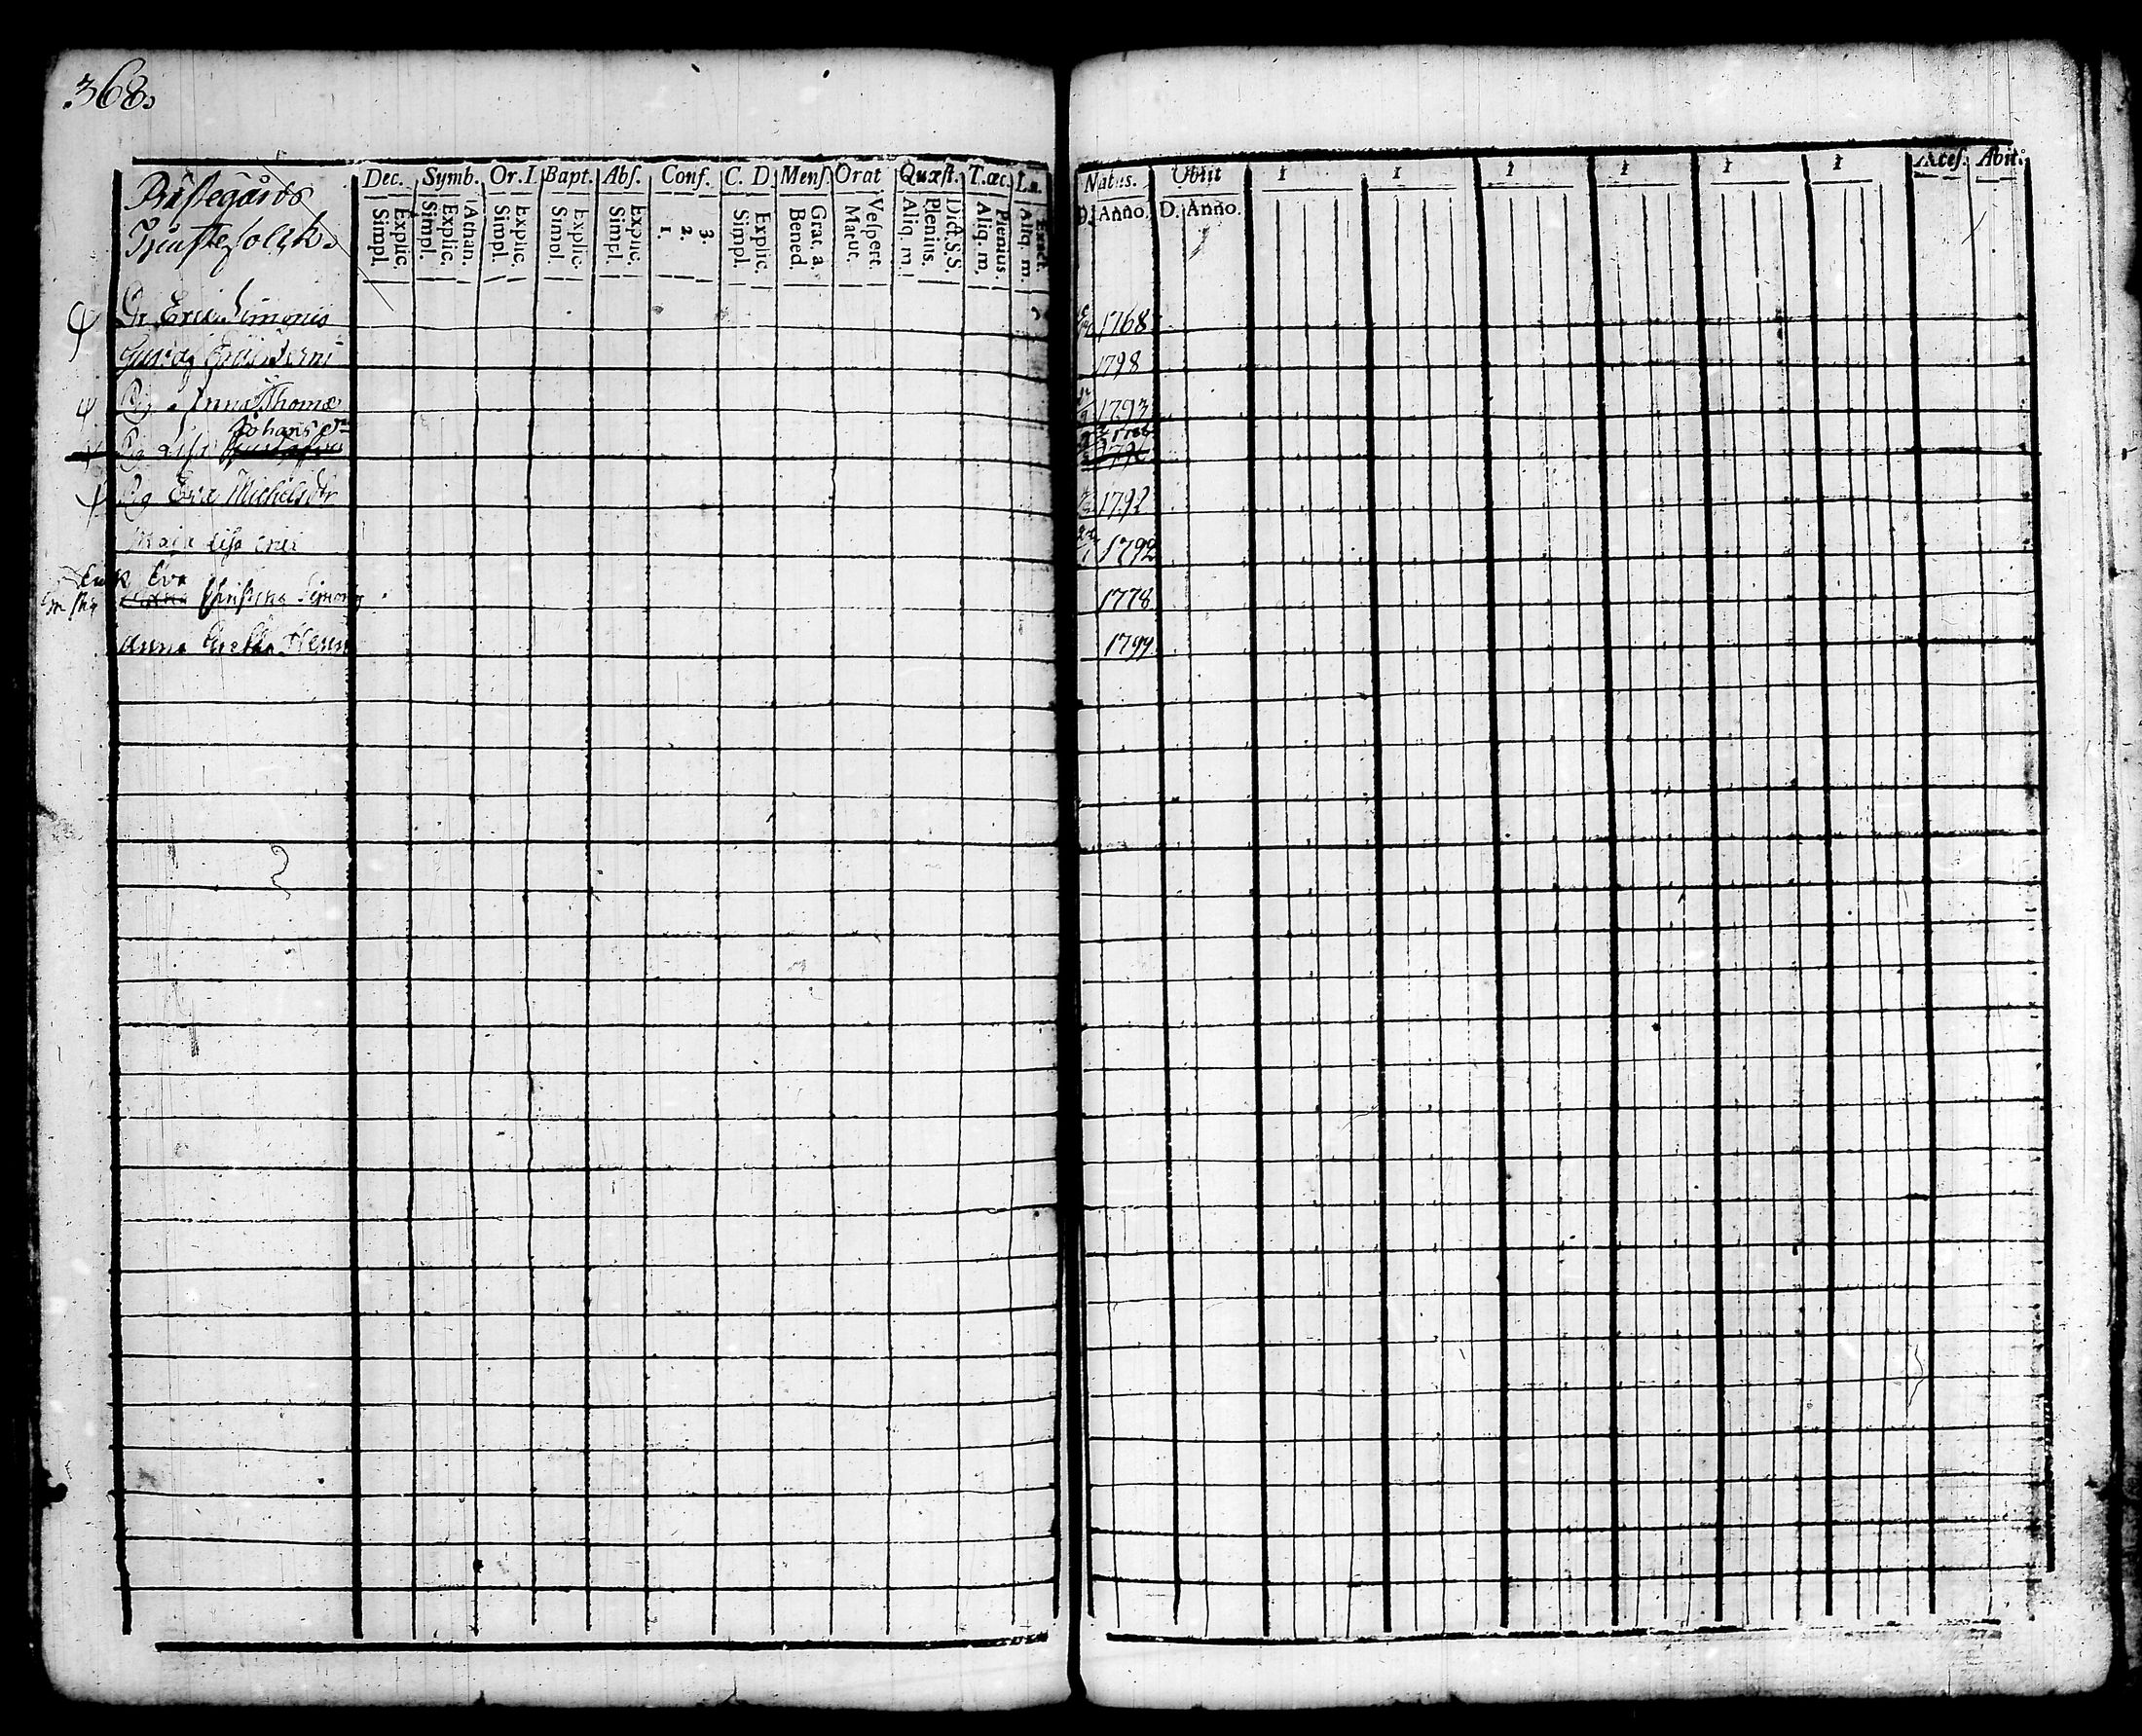 368.
Dec. Symb. Or. I. Bapt. Abs. Conf. C. D. Mens Orat Quæst. T. œc. Natus. Obiit 1 1 1 1 1 1 Acces. Abit.
Simpl. Explic. Simpl. Explic. Athan. Simpl. Explic. Simpl. Explic. Simpl. Explic. 1. 2. 3. Simpl. Explic. Bened. Grat. a. Matut. Vespert. Aliq. m. Plenius. Dict. S.S. Aliq. m. Plenius. Aliq. m. Exact. D. Anno. D. Anno.
Tjenstefolck.
Dr Eric Simonis 1768
1798
Pig Anna Thomæ 1793
Johansdr
Pig Lisa
Pig Eva Michelsdr 1792
Maja Lisa Eric 1792
Enk Eva
Christina Simons 1778
Anna Greta Henri 1799